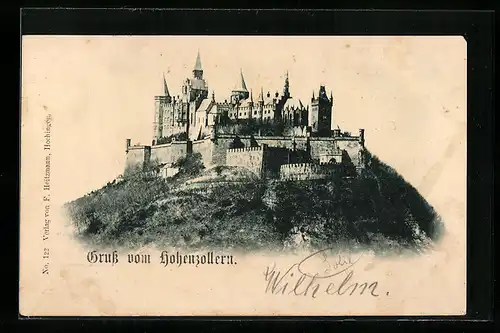 No. 122 Verlag von F. Heitzmann, Hechingen.
Gruß vom Hohenzollern.
Wilhelm.